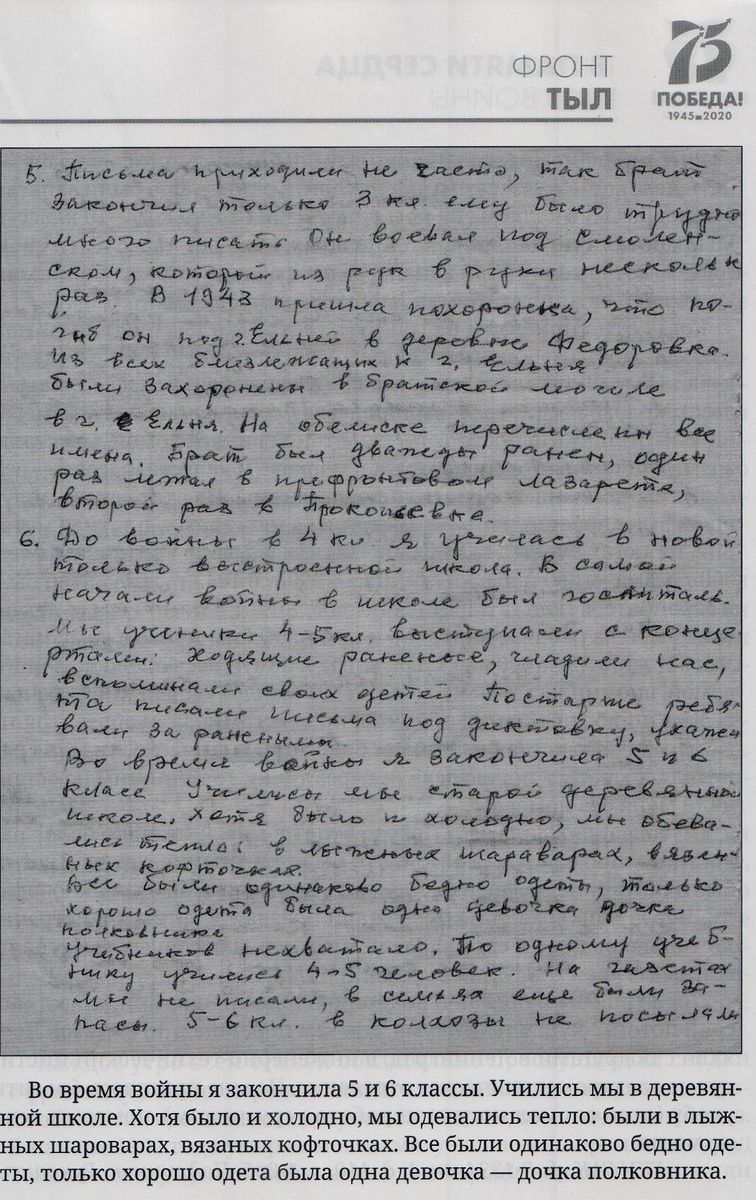 ФРОНТ
ТЫЛ
75
ПОБЕДА!
1945 2020
5. Письма приходили не часто, так брат
закончил только 3 кл. ему было трудно
много писать Он воевал под Смолен-
ском, который из рук в руки несколько
раз. В 1943 пришла похоронка, что по-
гиб он под г. Ельней в деревне Федоровка.
Из всех близлежащих к г. Ельня
были захоронены в братской могиле
в г. Ельня. На обелиске перечислены все
имена. Брат был дважды ранен, один
раз лежал в прифронтовом лазарете,
второй раз в Прокопьевке.
6. До войны в 4 кл. я училась в новой
только выстроенной школе. В самом
начали войны в школе был госпиталь.
Мы ученики 4-5 кл. выступали с конце
ртами. Ходящие раненые, гладили нас,
вспоминали своих детей Постарше ребя-
та писали письма под диктовку, ухажи
вали за ранеными.
Во время войны я закончила 5 и 6
класс Училисы мы старой деревянной
школе. Хотя было и холодно, мы одева-
лись тепло: в лыжных шараварах, вязан-
ных кофточках.
Все были одинаково бедно одеты, только
хорошо одета была одна девочка дочка
полковника
Учебников нехватало. По одному учеб-
нику учились 4-5 человек. На газетах
мы не писали, в семьях еще были за-
пасы. 5-6 кл. в колхозы не посылали
Во время войны я закончила 5 и 6 классы. Учились мы в деревян-
ной школе. Хотя было и холодно, мы одевались тепло: были в лыж-
ных шароварах, вязаных кофточках. Все были одинаково бедно оде-
ты, только хорошо одета была одна девочка — дочка полковника.